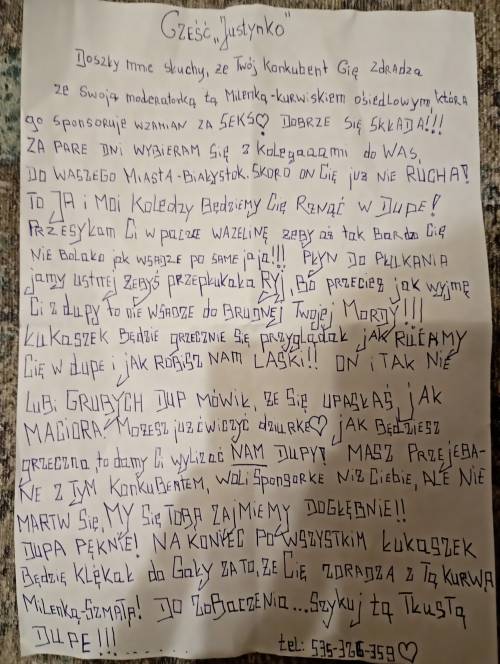 Cześć „Justynko"
Doszły mne słuchy, że Twój konkubent Cię zdradza
ze swoją moderatorką tą Milenką-kurwiskiem osiedlowym, która
go sponsoruje wzamian za SEKS♡ DOBRZE SIĘ SKŁADA!!!
ZA PARE DNI WYBIERAM SIĘ z kolegaaami do WAS,
DO WASZEGO MIASTA-BIAŁYSTOK. SKORO ON CIĘ JUŻ NIE RUCHA!
TO JA i Moi Koledzy Będziemy Cię RZNĄĆ W DUPE!
PRZESYŁAM Ci w paczce WAZELINĘ żeby aś tak Bardzo Cię
NIE Bolało jak wsadzę po same jaja!!! PŁYN DO PŁUKANIA
jamy ustnej żebyś przepłukała RYJ, Bo przecież jak wyjmę
Ci z dupy to nie wsadzę do BRUDNEJ Twojej MORDY!!!
ŁUKASZEK BĘDZIE grzecznie się przyglądał jak RUCAMY
CIĘ W dupe i jak ROBISZ NAM LASKĘ!! ON i TAK NIE
LUBi GRUBYCH DUP MÓWIŁ, ŻE SIĘ UPASŁAŚ JAK
MACIORA! Możesz już ćwiczyć dziurkę♡ jak BĘDZIESZ
grzeczna, to damy Ci wylizać NAM DUPY! MASZ PRZEJEBA-
NE Z TYM KONKUBENTEM, WOLI SPONSORKE NIŻ CIEBIE, ALE NIE
MARTW SIĘ, MY SIĘ TOBĄ ZAJMIEMY DOGŁĘBNIE!!
DUPA PĘKNIE! NA KONIEC PO WSZYSTKIM ŁUKASZEK
BĘDZIE KLĘKAŁ do GAŁY ZA TO, ŻE CIĘ ZDRADZA Z TĄ KURWĄ
MILENKĄ-SZMATĄ! DO ZOBACZENIA...Szykuj tą Tłustą
DUPE!!!........ tel: 535-326-359♡